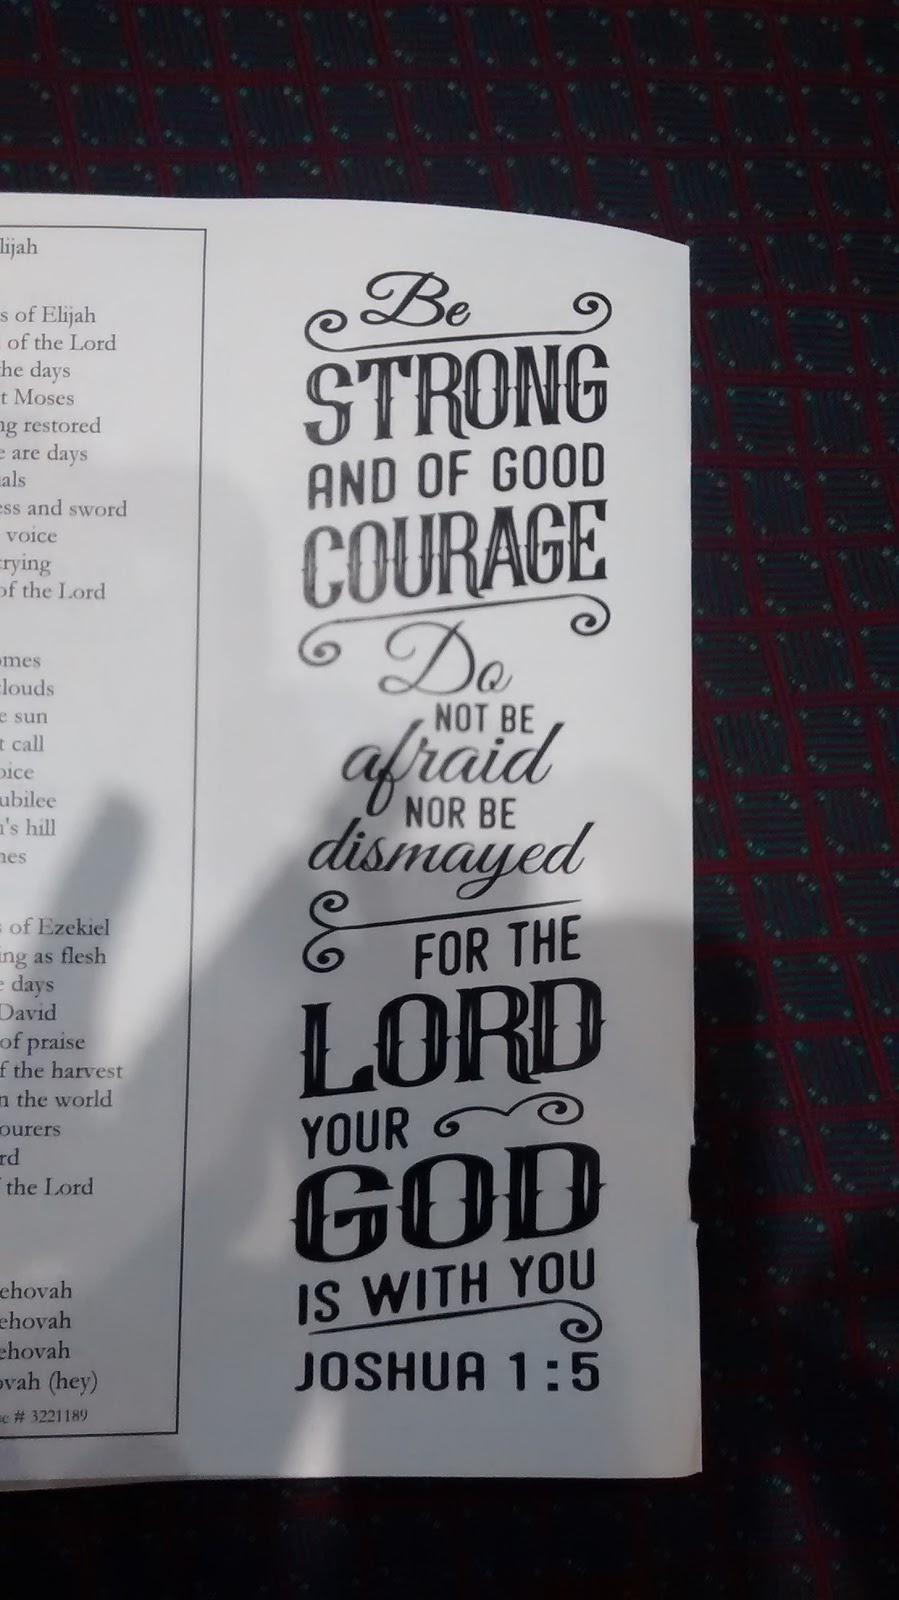 lijah
s of Elijah
of the Lord
he days
t Moses
ng restored
e are days
als
ess and sword
voice
crying
of the Lord
omes
clouds
e sun
t call
oice
ubilee
n's hill
mes
s of Ezekiel
ing as flesh
e days
David
of praise
f the harvest
n the world
ourers
rd
the Lord
ehovah
ehovah
ehovah
ovah (hey)
# 3221189
Be
STRONG
AND OF GOOD
COURAGE
Do
NOT BE
afraid
NOR BE
dismayed
FOR THE
LORD
YOUR
GOD
IS WITH YOU
JOSHUA 1:5